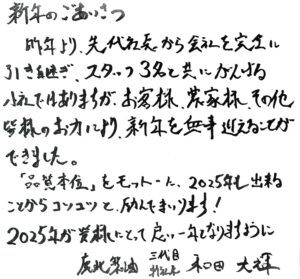 新年のごあいさつ
昨年より、先代社長から会社を完全に
引き継ぎ、スタッフ3名と共にがんばる
小社ではありますが、お客様、農家様、その他
皆様のお力により、新年を無事迎えることが
できました。
「品質本位」をモットーに、2025年も出来る
ことからコツコツと、励んでまいります!
2025年が皆様にとって良い一年となりますように
三代目 和田 大輝